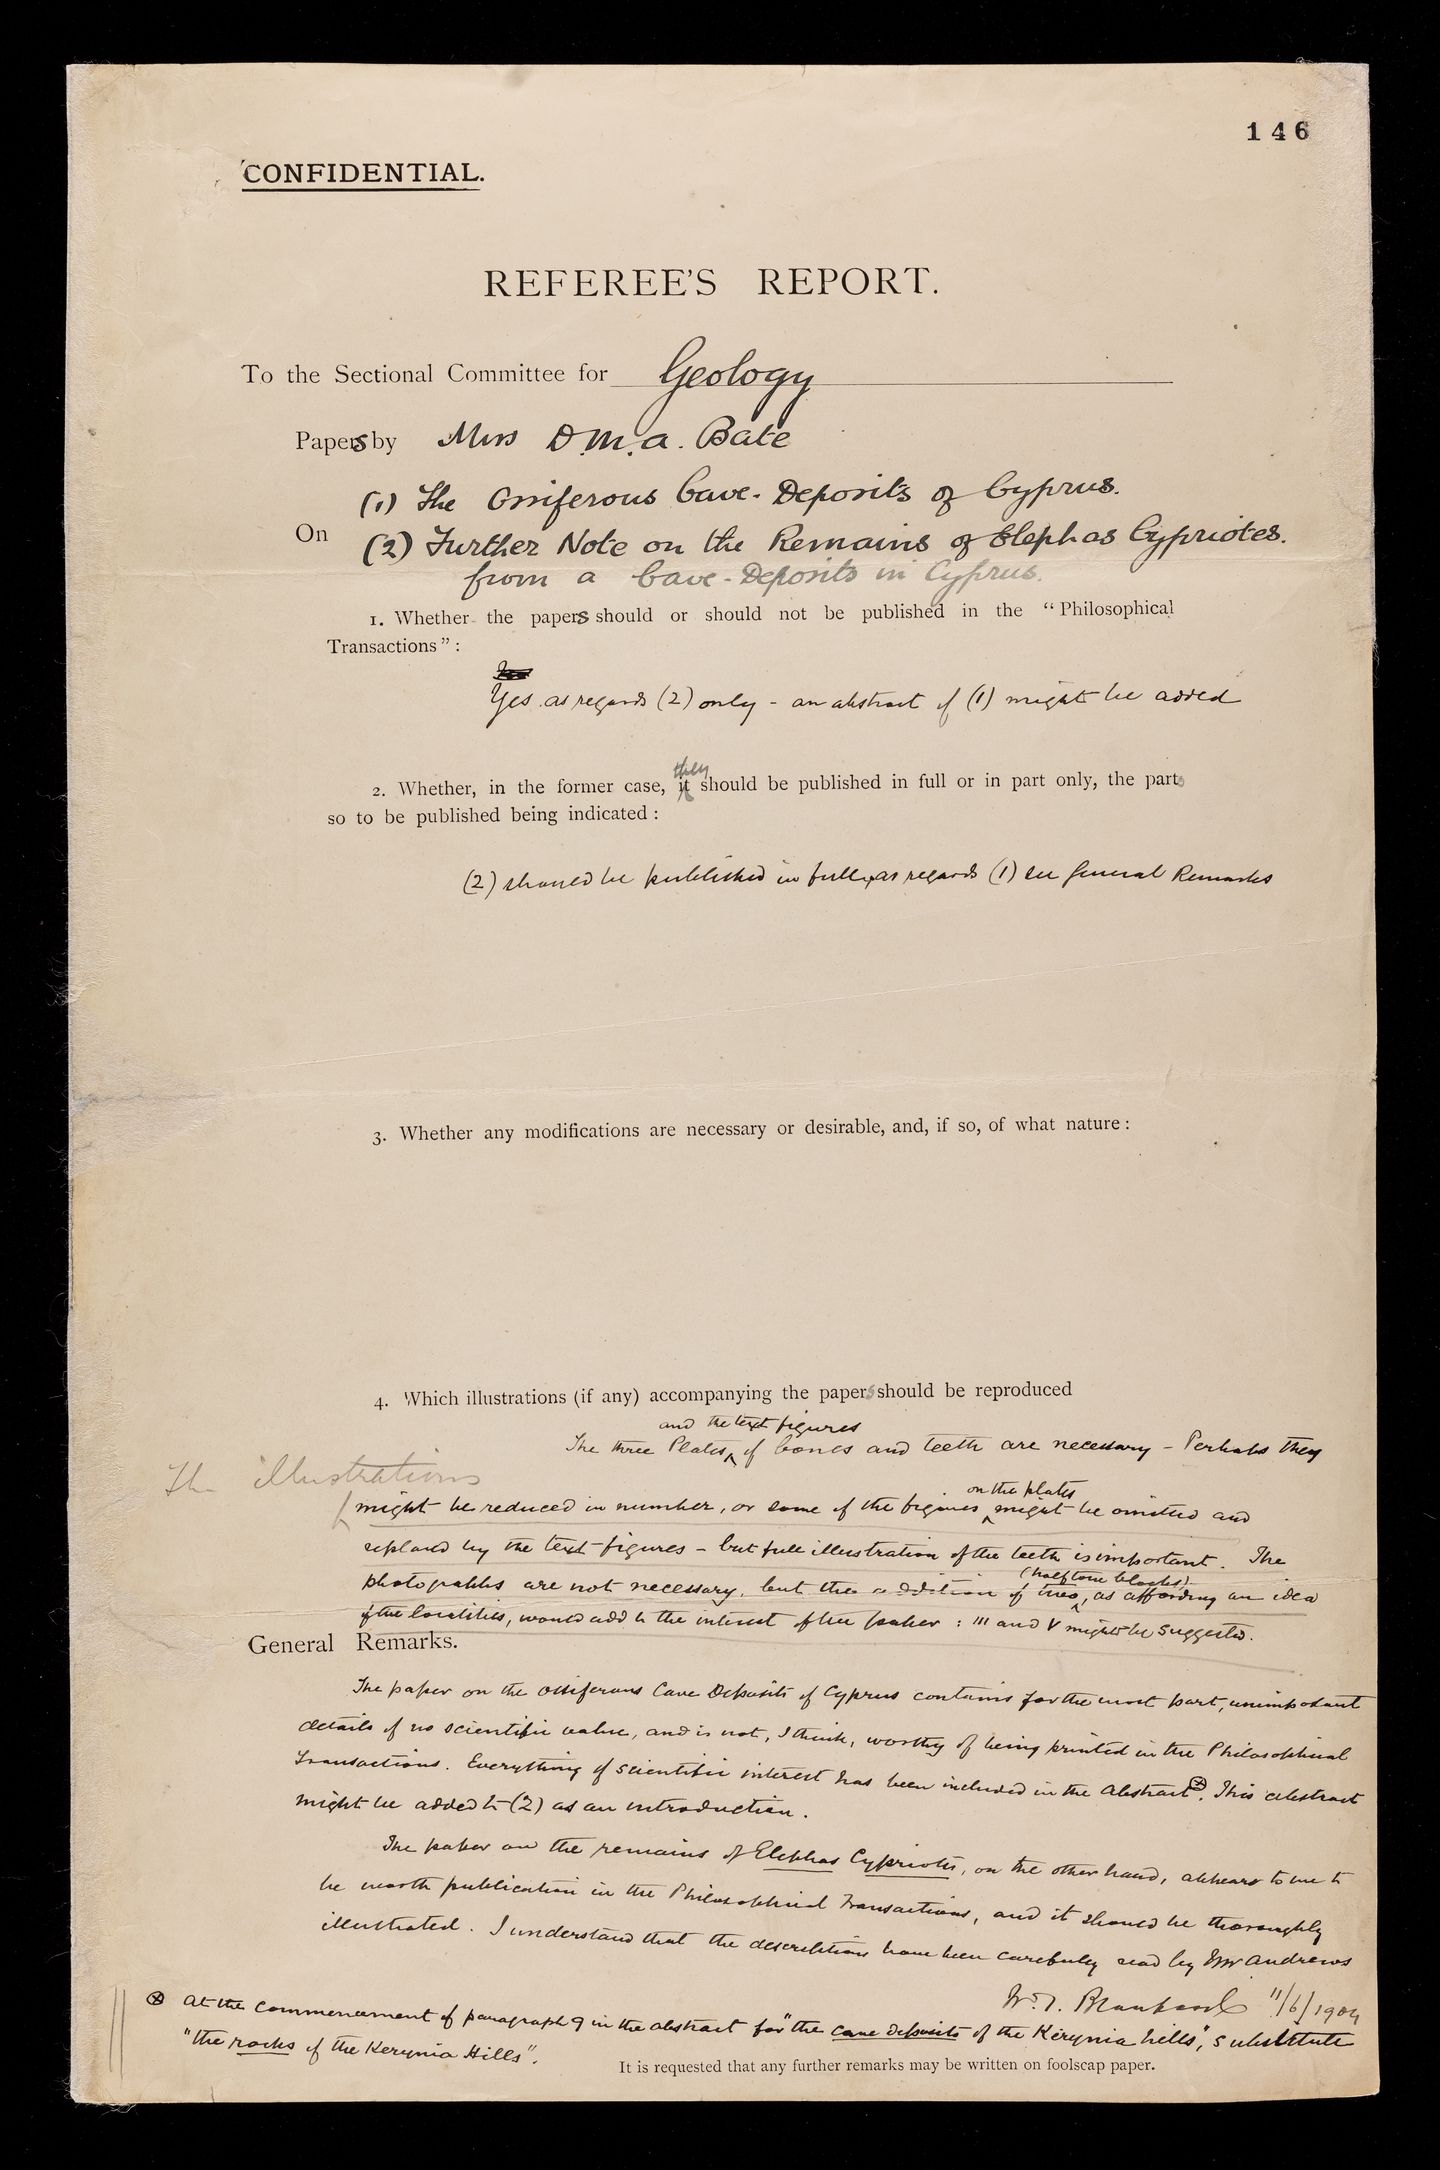 146
CONFIDENTIAL.
REFEREE'S REPORT.
To the Sectional Committee for Geology
Papers by Miss D.M.A. Bate
(1) The Ossiferous Cave-Deposits of Cyprus.
On
(2) Further Note on the Remains of Elephas Cypriotes.
from a Cave-Deposits in Cyprus.
1. Whether the papers should or should not be published in the "Philosophical
Transactions":
Yes as regards (2) only - an abstract of (1) might be added
they
2. Whether, in the former case, it should be published in full or in part only, the parts
so to be published being indicated:
(2) should be published in full, as regards (1) see General Remarks
3. Whether any modifications are necessary or desirable, and, if so, of what nature:
4. Which illustrations (if any) accompanying the papers should be reproduced
and the text figures
The three Plates ‸ of bones and teeth are necessary - Perhaps they
The illustrations
on the plates
might be reduced in number, or some of the figures ‸ might be omitted and
replaced by the text-figures - but full illustration of the teeth is important. The
(half tone blocks)
photographs are not necessary, but the addition of two ‸, as affording an idea
of the localities, would add to the interest of the paper: III and V might be suggested.
General Remarks.
The paper on the Ossiferous Cave Deposits of Cyprus contains for the most part, unimportant
details of no scientific value, and is not, I think, worthy of being printed in the Philosophical
Transactions. Everything of scientific interest has been included in the abstract ⊗. This abstract
might be added to (2) as an introduction.
The paper on the remains of Elephas Cypriotes, on the other hand, appears to me to
be worth publication in the Philosophical Transactions, and it should be thoroughly
illustrated. I understand that the descriptions have been carefully read by Dr Andrews
W. T. Blanford 11/6/1904
⊗ At the commencement of paragraph 9 in the abstract for "the cave deposits of the Kerynia hills", substitute
"the rocks of the Kerynia Hills".
It is requested that any further remarks may be written on foolscap paper.